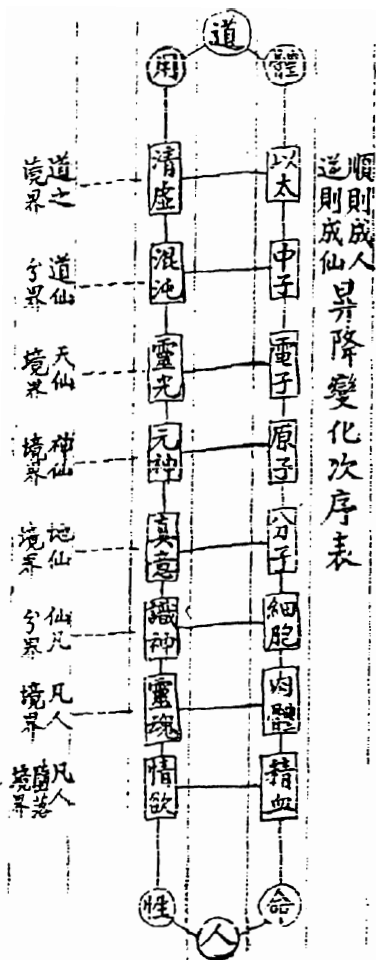 順則成人
逆則成仙
昇降變化次序表
道
體
以太
中子
電子
原子
分子
細胞
肉體
精血
命
用
清虛
混沌
靈光
元神
真意
識神
靈魂
情欲
性
人
道之
境界
道仙
分界
天仙
境界
神仙
境界
地仙
境界
仙凡
分界
凡人
境界
凡人
墮落
境界